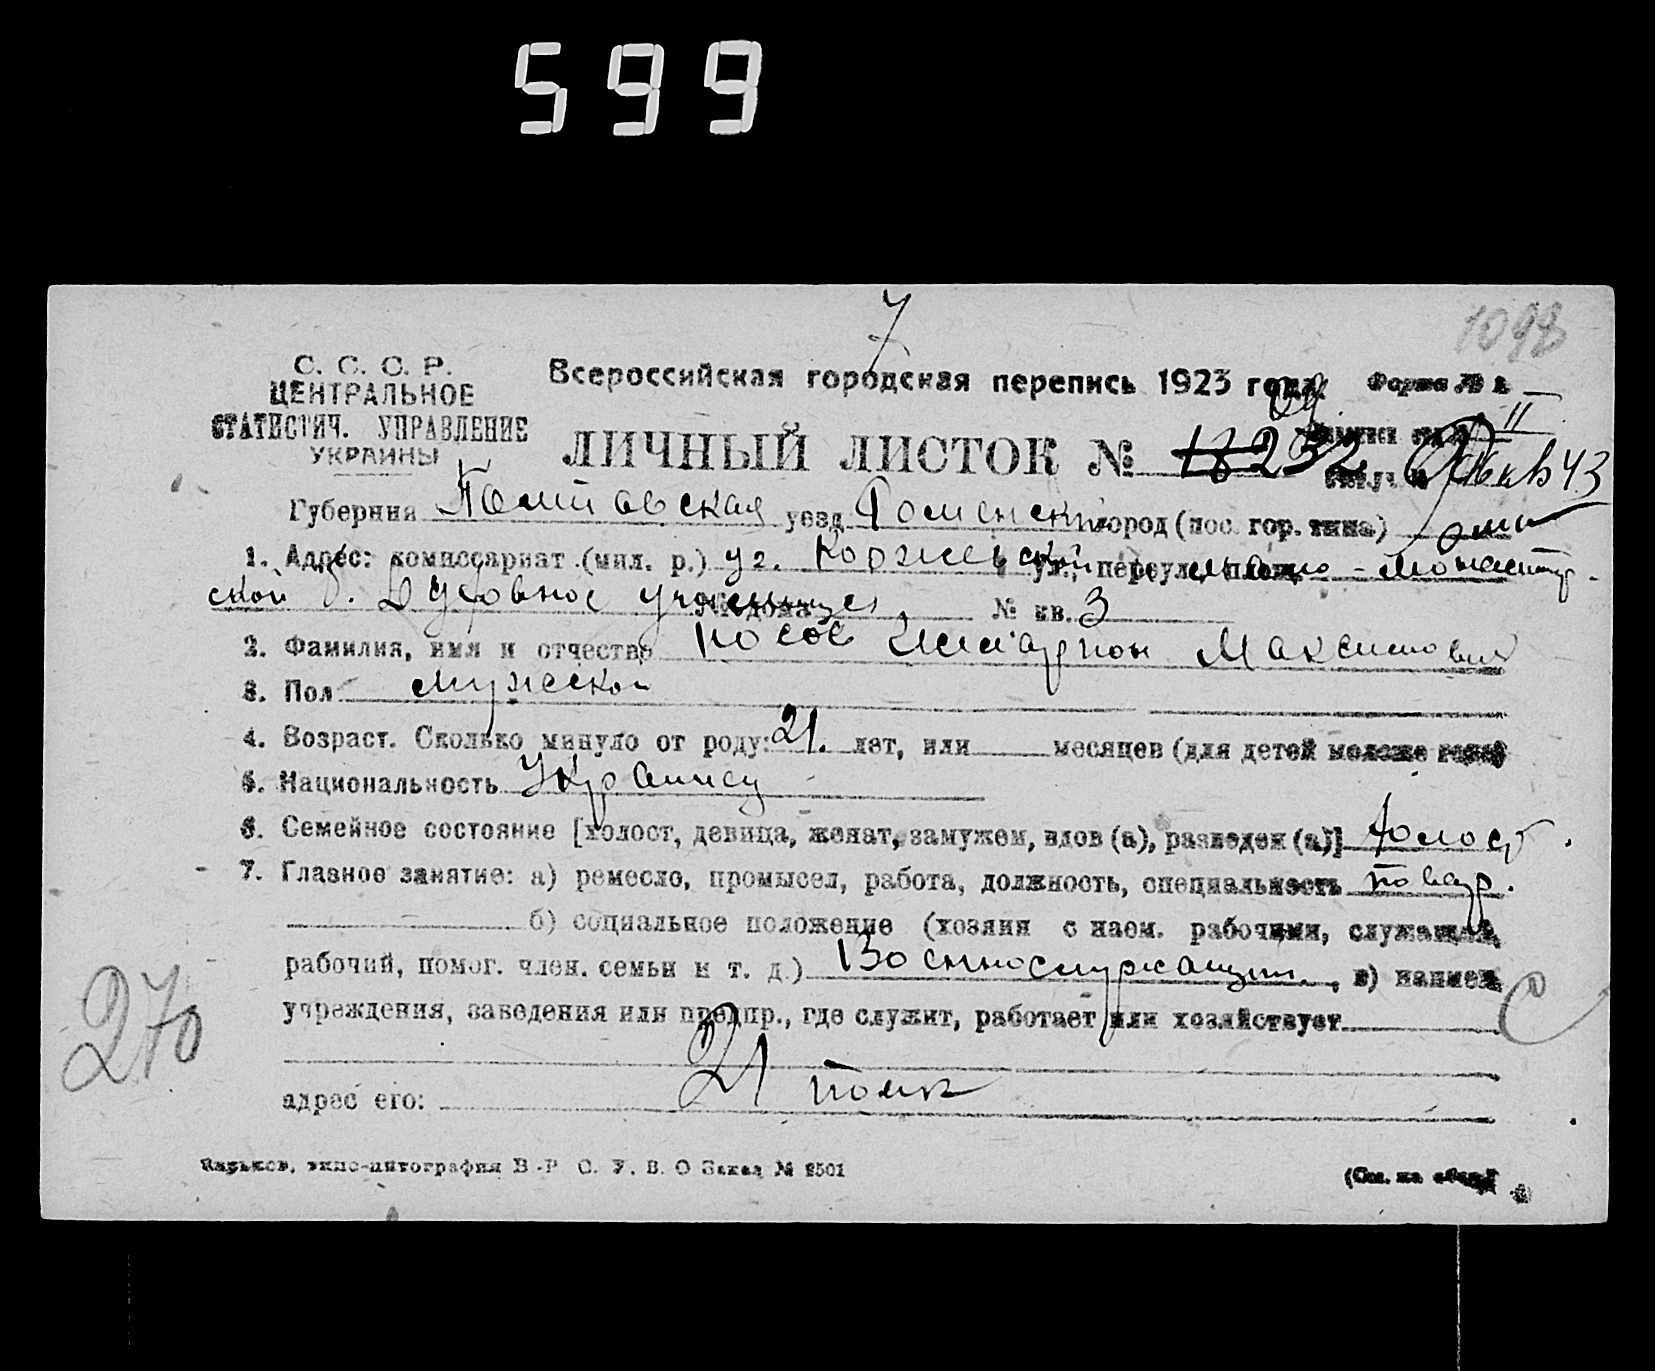 599
7
1098
С. С. С. Р.
ЦЕНТРАЛЬНОЕ
СТАТИСТИЧ. УПРАВЛЕНИЕ
УКРАИНЫ
Всероссийская городская перепись 1923 года Форма № 1
ЛИЧНЫЙ ЛИСТОК №
Губерния Полтавская уезд Роменский город (пос. гор. типа)
1. Адрес: комиссариат (мил. р.) уг. Коржевской ул., переул., площ. мало-монастыр-
ской б. Духовное училище № дома № кв. 3
2. Фамилия, имя и отчество Носов Илларион Максимович
3. Пол мужской
4. Возраст. Сколько минуло от роду: 21. лет, или месяцев (для детей моложе года)
5. Национальность Украинец
6. Семейное состояние [холост, девица, женат, замужем, вдов (а), разведен (а)] холост.
7. Главное занятие: а) ремесло, промысел, работа, должность, специальность повар.
б) социальное положение (хозяин с наем. рабочими, служащий,
рабочий, помог. член. семьи и т. д.) Военнослужащий, в) наимен.
учреждения, заведения или предпр., где служит, работает или хозяйствует
270
21 полк
адрес его:
Харьков, типо-литография В. Р. С. У. В. О Заказ № 2501
(См. на обор.)